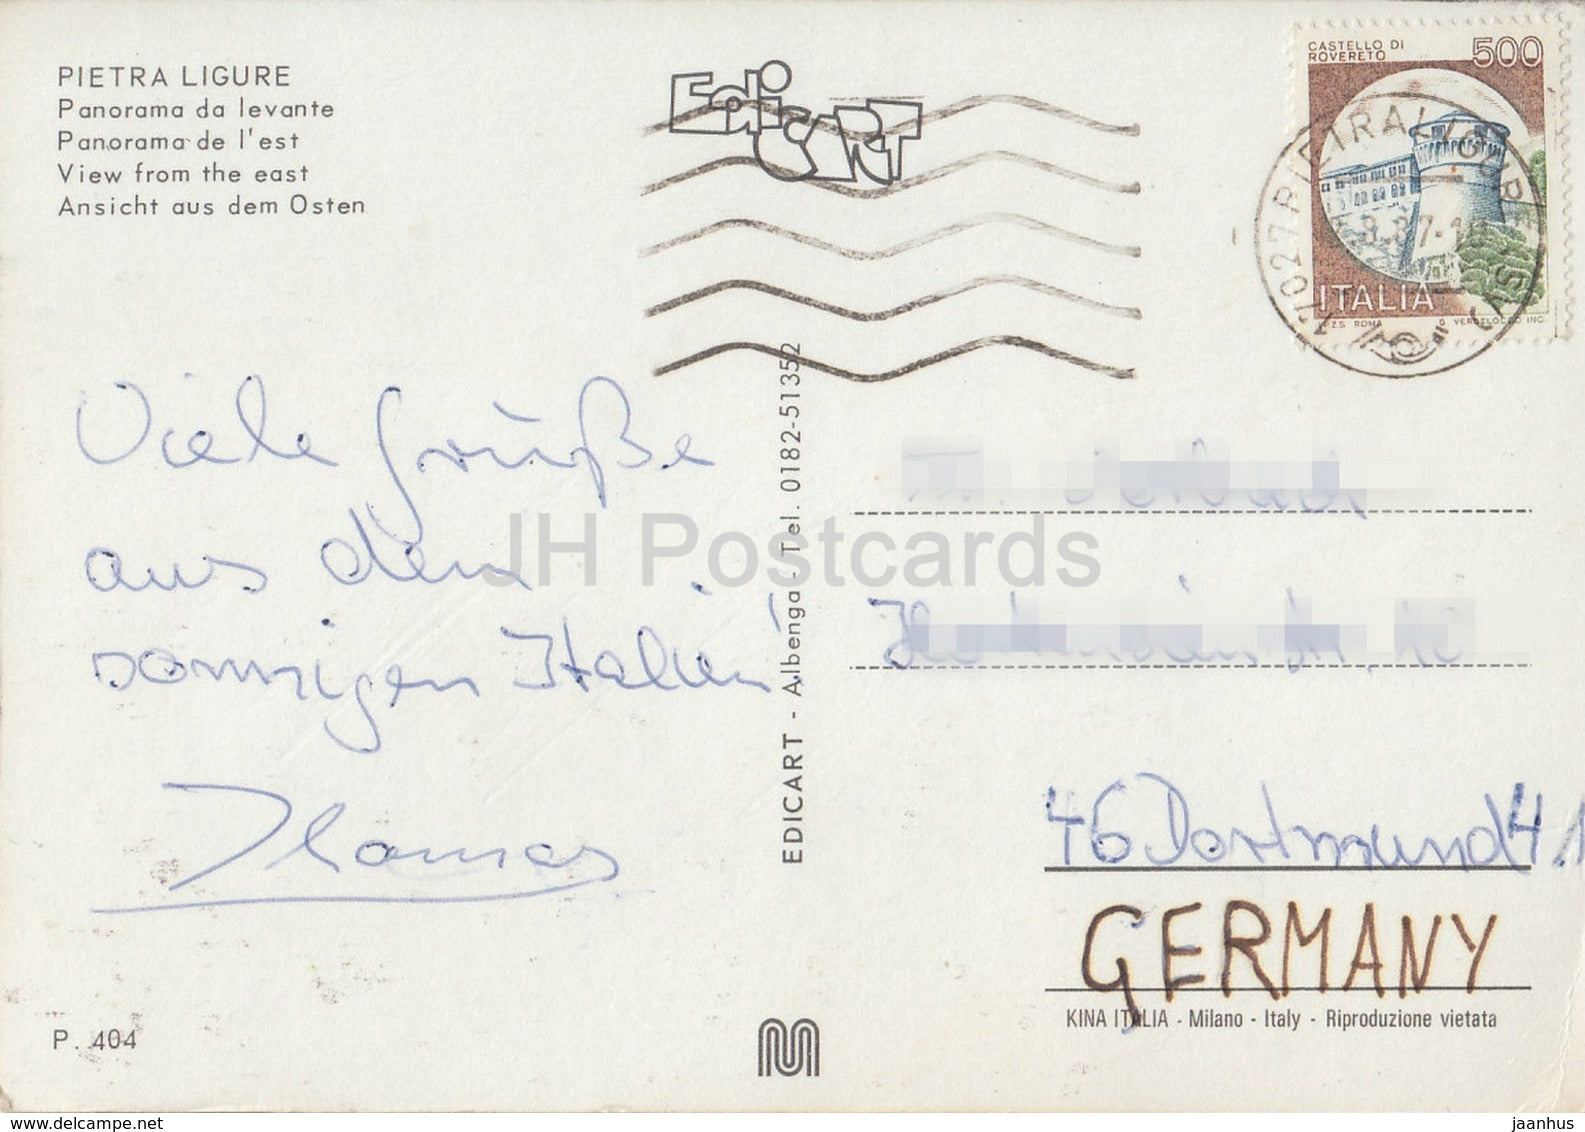 PIETRA LIGURE
Panorama da levante
Panorama de l'est
View from the east
Ansicht aus dem Osten
EdiCART
CASTELLO DI
ROVERETO
500
ITALIA
I.P.Z.S. ROMA
G. VERDELOCCO INC.
17027 PIETRA LIGURE (SV)
Viele Grüße
aus dem
sonnigen Italien!
Thomas
EDICART - Albenga - Tel. 0182-51352
46 Dortmund 41
GERMANY
KINA ITALIA - Milano - Italy - Riproduzione vietata
P. 404
JH Postcards
www.delcampe.net
jaanhus